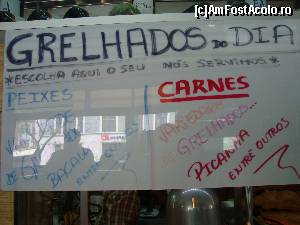 (c)AmFostAcolo.ro
GRELHADOS DO DIA
*ESCOLHA AQUI O SEU NÓS SERVIMOS*
PEIXES
VARIEDADE
DE
BACALHAU
ENTRE OUTROS
CARNES
VARIEDADE
DE GRELHADOS...
PICANHA
ENTRE OUTROS